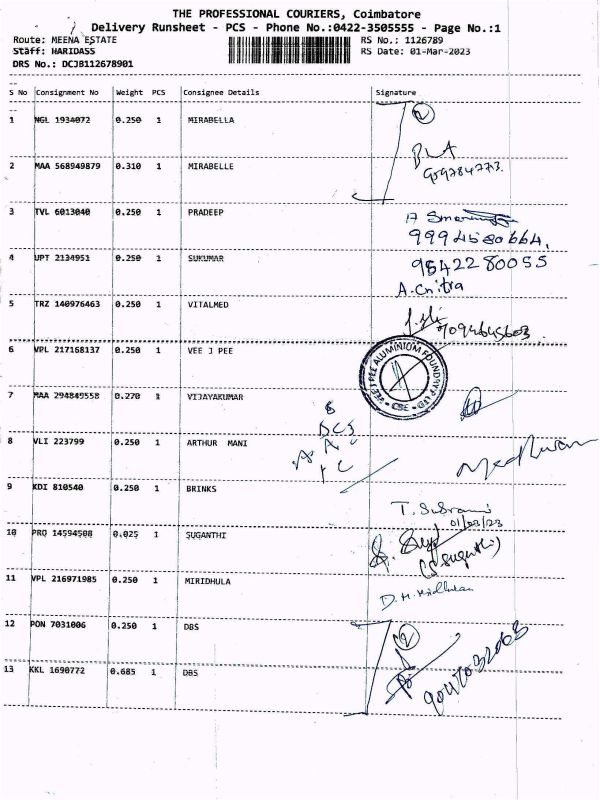 THE PROFESSIONAL COURIERS, Coimbatore
Delivery Runsheet - PCS - Phone No.:0422-3505555 - Page No.:1
Route: MEENA ESTATE
Staff: HARIDASS
DRS No.: DCJB112678901
RS No.: 1126789
RS Date: 01-Mar-2023
S No Consignment No Weight PCS Consignee Details Signature
1 NGL 1934072 0.250 1 MIRABELLA 2
2 MAA 568949879 0.310 1 MIRABELLE
3 TVL 6013040 0.250 1 PRADEEP
4 UPT 2134951 0.250 1 SUKUMAR 9842280055
A. Chitra
5 TRZ 140976463 0.250 1 VITALMED
6 VPL 217168137 0.250 1 VEE J PEE VEE J PEE ALUMINIUM FOUNDRY CBE
7 MAA 294849558 0.270 1 VIJAYAKUMAR
8 VLI 223799 0.250 1 ARTHUR MANI
9 KDI 810540 0.250 1 BRINKS
01/03/23
10 PRQ 14594508 0.025 1 SUGANTHI (Suganthi)
11 VPL 216971985 0.250 1 MIRIDHULA
12 PON 7031006 0.250 1 DBS 2
13 KKL 1690772 0.685 1 DBS